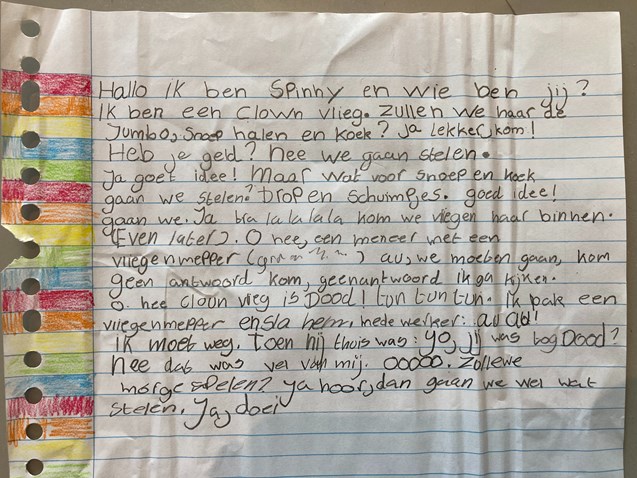 Hallo ik ben Spinny en wie ben jij?
Ik ben een clown vlieg. Zullen we naar de
Jumbo, snoep halen en koek? Ja lekker, kom!
Heb je geld? nee we gaan stelen.
Ja goet idee! Maar wat voor snoep en koek
gaan we stelen? Drop en schuimpjes. goed idee!
gaan we. Ja tra la la la la kom we vliegen naar binnen.
(Even later). O nee, een meneer met een
vliegenmepper ( ) au, we moeten gaan, kom
geen antwoord kom, geenantwoord ik ga kijken.
O. nee clown vlieg is Dood! tun tun tun. Ik pak een
vliegenmepper en sla hem, mede werker: au au!
Ik moet weg. Toen hij thuis was: yo, jij was tog Dood?
nee dat was vel van mij. OOOOO. Zollewe
morge spelen? ya hoor, dan gaan we wel wat
stelen. Ja, doei